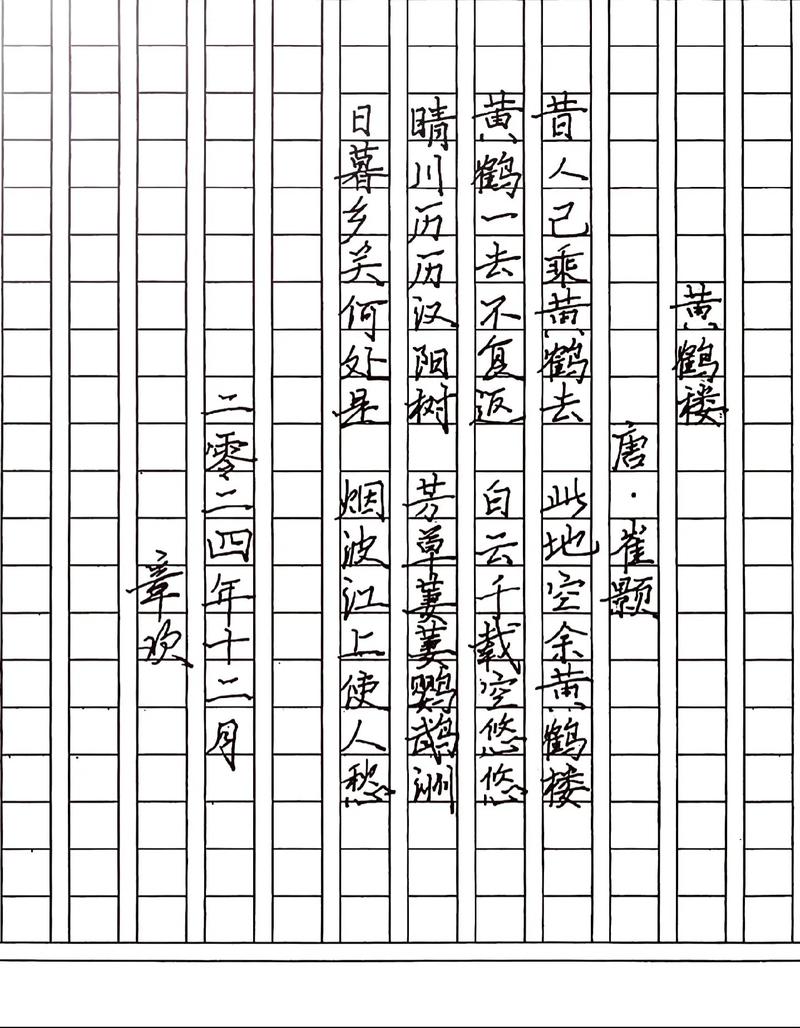 黄鹤楼
唐·崔颢
昔人已乘黄鹤去 此地空余黄鹤楼
黄鹤一去不复返 白云千载空悠悠
晴川历历汉阳树 芳草萋萋鹦鹉洲
日暮乡关何处是 烟波江上使人愁
二零二四年十二月
章欢